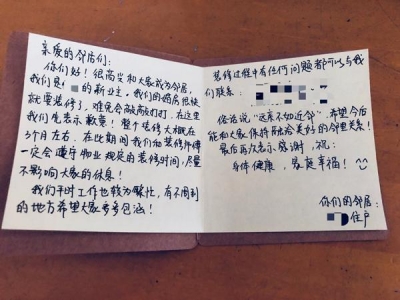 亲爱的邻居们：
你们好！很高兴和大家成为邻居，
我们是 的新业主。我们的婚房很快
就要装修了，难免会敲敲打打，在这里
我们先表示歉意！整个装修大概在
3个月左右。在此期间我们和装修师傅
一定会遵守物业规定的装修时间，尽量
不影响大家的休息！
我们平时工作也较为繁忙，有不周到
的地方希望大家多多包涵！
装修过程中有任何问题都可以与我
们联系：
俗话说“远亲不如近邻”，希望今后
能和大家保持融洽美好的邻里关系！
最后再次表示感谢，祝：
身体健康，家庭幸福！
你们的邻居：
住户